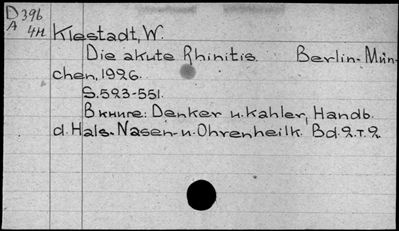 D 396
A 4н
Klestadt, W.
Die akute Rhinitis. Berlin-Mün-
chen, 1926.
S. 523-551.
В книге: Denker u. Kahler, Handb.
d. Hals-Nasen-u. Ohrenheilk. Bd. 2. т. 2.